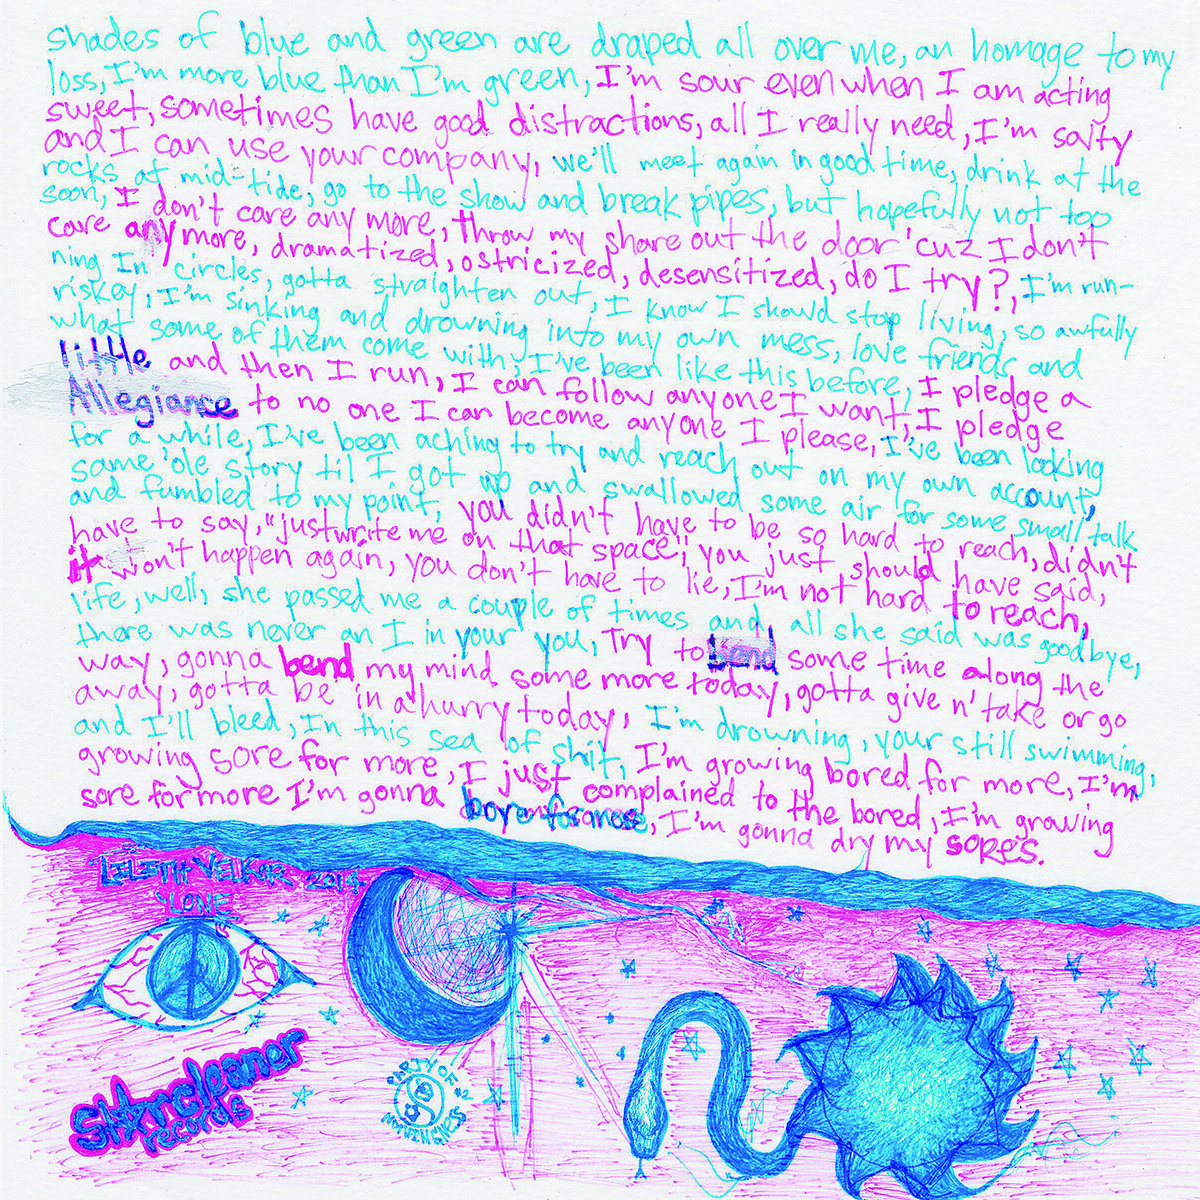 shades of blue and green are draped all over me, an homage to my
loss, I'm more blue than I'm green, I'm sour even when I am acting
sweet, sometimes have good distractions, all I really need, I'm salty
and I can use your company, we'll meet again in good time, drink at the
rocks at mid-tide, go to the show and break pipes, but hopefully not too
soon, I don't care any more, throw my share out the door 'cuz I don't
care any more, dramatized, ostricized, desensitized, do I try?, I'm run-
ning In circles, gotta straighten out, I know I should stop living, so awfully
riskey, I'm sinking and drowning into my own mess, love friends and
what some of them come with, I've been like this before, I pledge a
little and then I run, I can follow anyone I want, I pledge
Allegiance to no one I can become anyone I please, I've been looking
for a while, I've been aching to try and reach out on my own account,
same 'ole story til I got up and swallowed some air for some small talk
and fumbled to my point, you didn't have to be so hard to reach, didn't
have to say, "just write me on that space", you just should have said,
it won't happen again, you don't have to lie, I'm not hard to reach,
life, well, she passed me a couple of times and all she said was goodbye,
there was never an I in your you, Try to some time along the
way, gonna bend my mind some more today, gotta give n' take or go
away, gotta be in a hurry today, I'm drowning, your still swimming,
and I'll bleed, In this sea of shit, I'm growing bored for more, I'm
growing sore for more, I just complained to the bored, I'm growing
sore for more I'm gonna , I'm gonna dry my sores.
LILITH VELKOR 2014
LOVE
starcleaner
records
PARTY OF #2